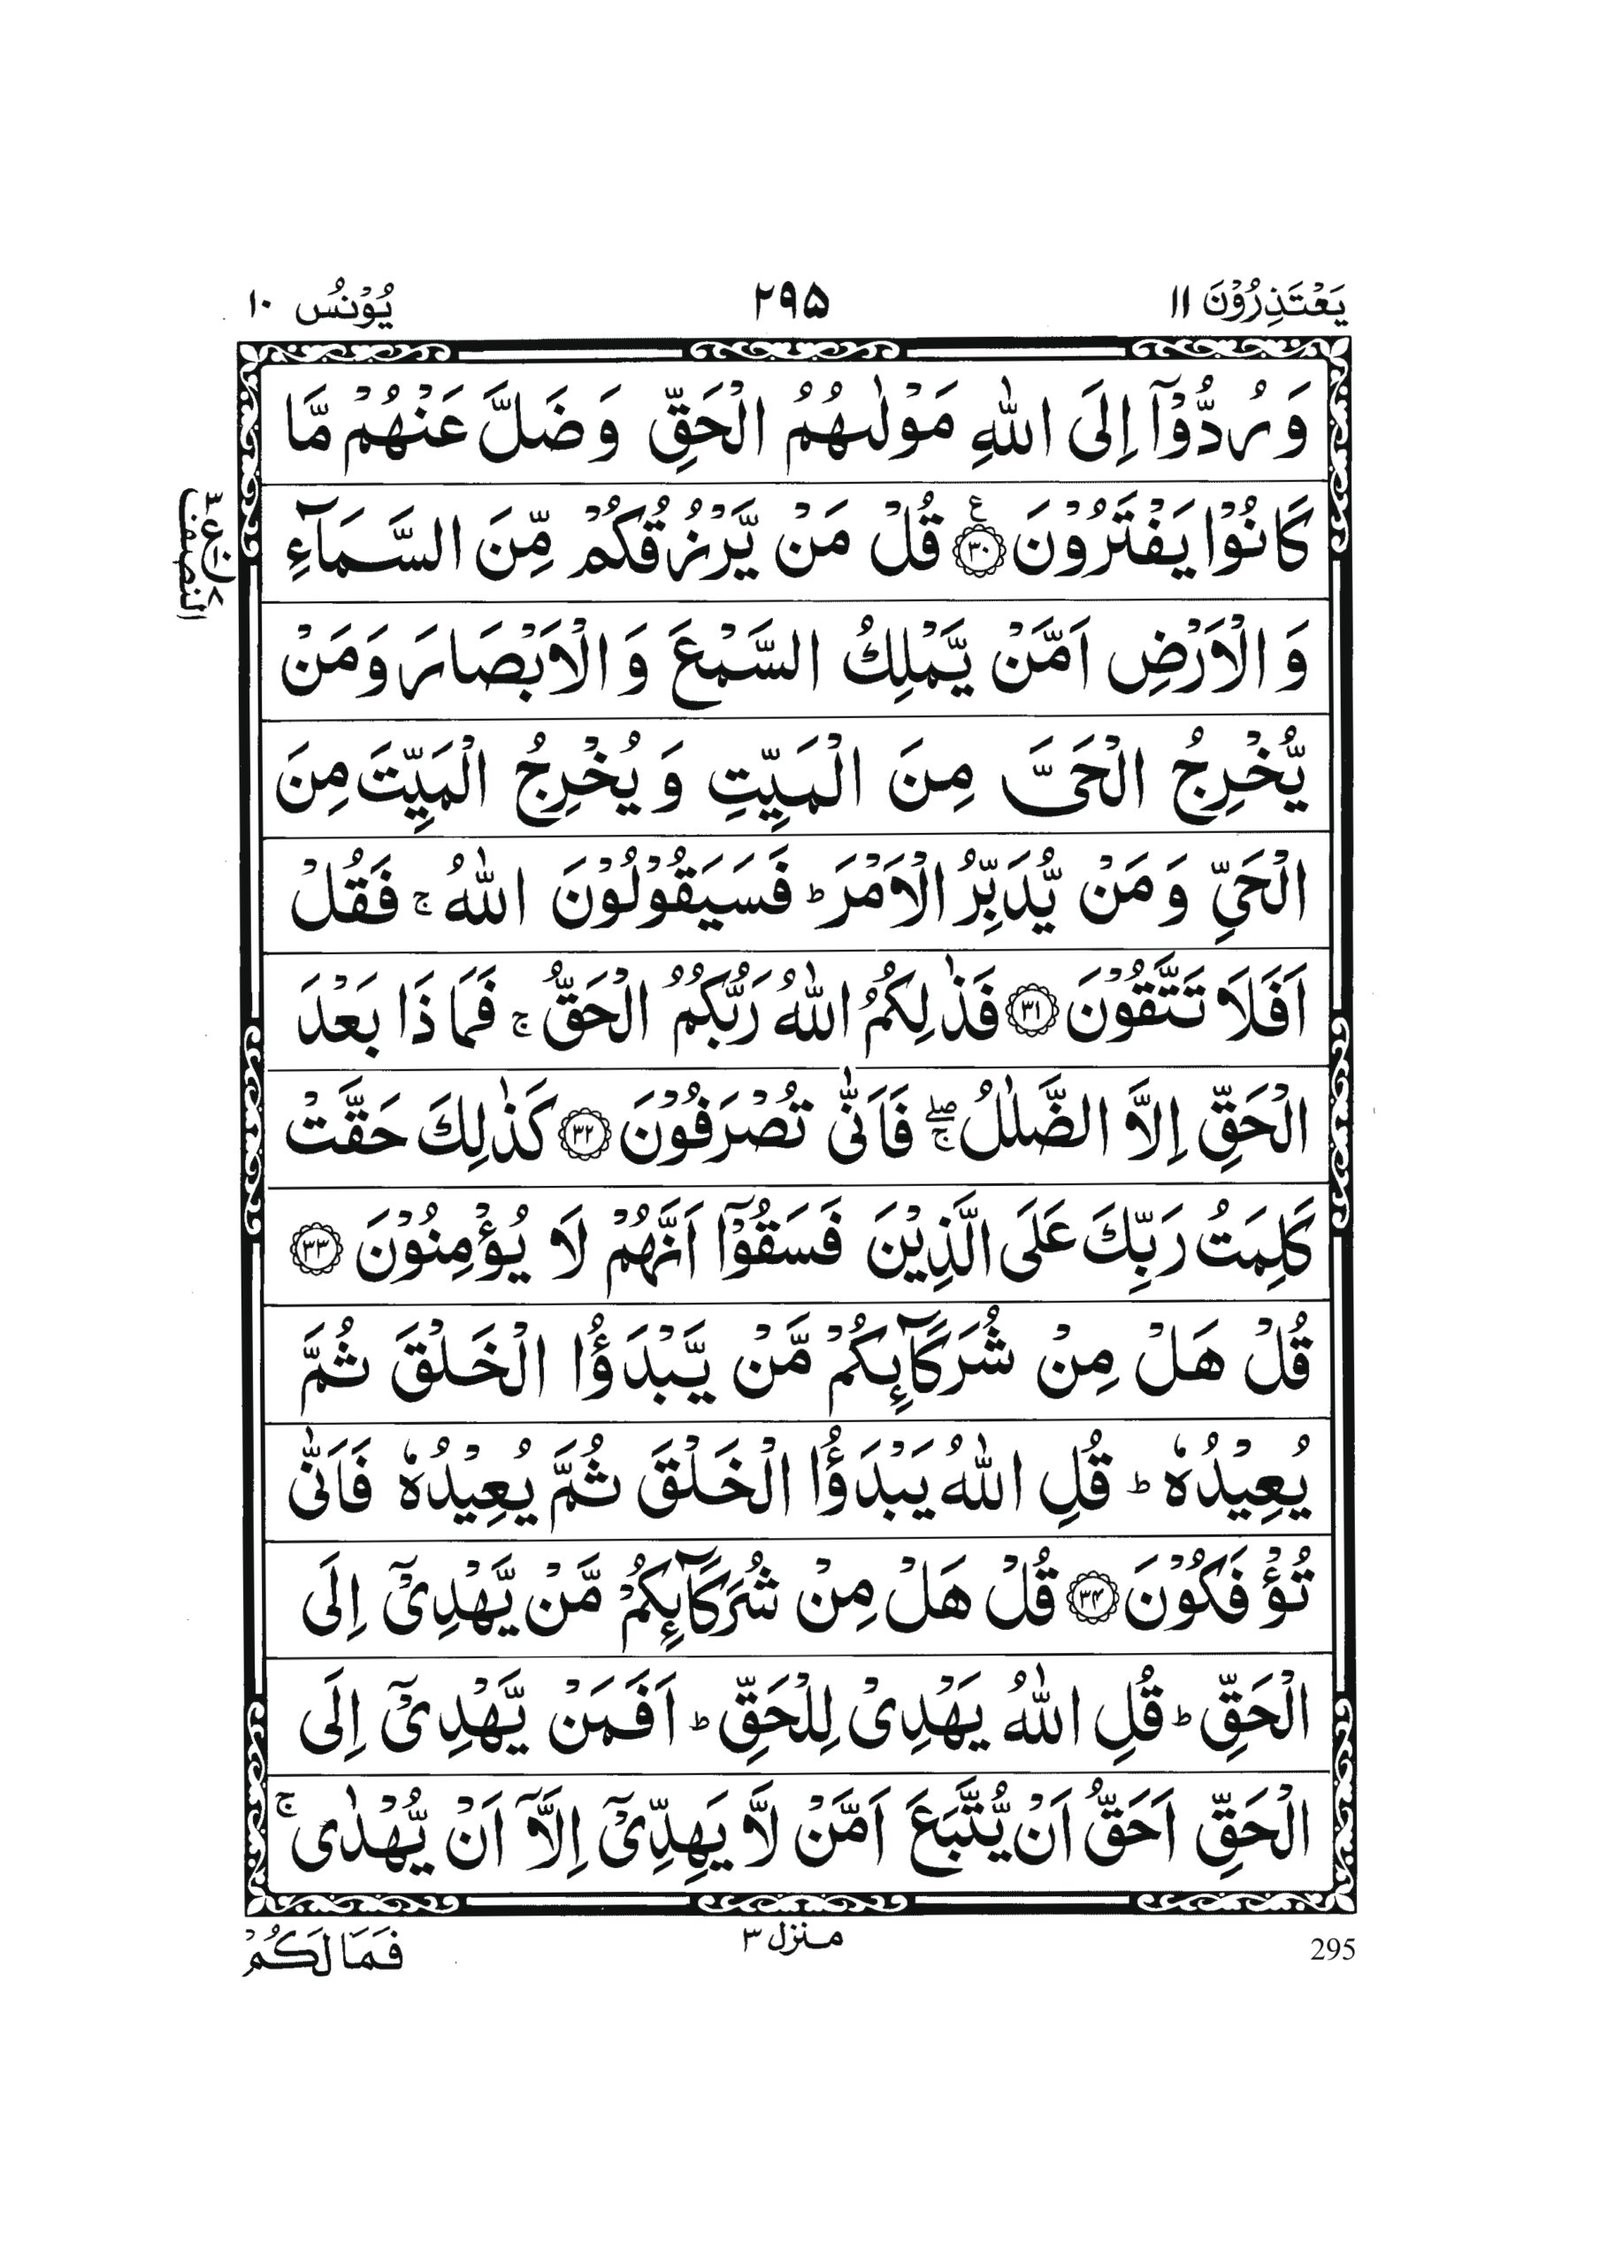 يَعْتَذِرُوْنَ ١١
٢٩٥
يُوْنُس ١٠
وَ رُدُّوْۤا اِلَى اللّٰهِ مَوْلٰىهُمُ الْحَقِّ وَ ضَلَّ عَنْهُمْ مَّا
كَانُوْا يَفْتَرُوْنَ ﴿۳۰﴾ ع قُلْ مَنْ يَّرْزُقُكُمْ مِّنَ السَّمَآءِ
وَ الْاَرْضِ اَمَّنْ يَّمْلِكُ السَّمْعَ وَ الْاَبْصَارَ وَ مَنْ
يُّخْرِجُ الْحَىَّ مِنَ الْمَيِّتِ وَ يُخْرِجُ الْمَيِّتَ مِنَ
الْحَيِّ وَ مَنْ يُّدَبِّرُ الْاَمْرَ ؕ فَسَيَقُوْلُوْنَ اللّٰهُ ۚ فَقُلْ
اَفَلَا تَتَّقُوْنَ ﴿۳۱﴾ فَذٰلِكُمُ اللّٰهُ رَبُّكُمُ الْحَقُّ ۚ فَمَا ذَا بَعْدَ
الْحَقِّ اِلَّا الضَّلٰلُ ۖۚ فَاَنّٰى تُصْرَفُوْنَ ﴿۳۲﴾ كَذٰلِكَ حَقَّتْ
كَلِمَتُ رَبِّكَ عَلَى الَّذِيْنَ فَسَقُوْۤا اَنَّهُمْ لَا يُؤْمِنُوْنَ ﴿۳۳﴾
قُلْ هَلْ مِنْ شُرَكَآئِكُمْ مَّنْ يَّبْدَؤُا الْخَلْقَ ثُمَّ
يُعِيْدُهٗ ؕ قُلِ اللّٰهُ يَبْدَؤُا الْخَلْقَ ثُمَّ يُعِيْدُهٗ فَاَنّٰى
تُؤْفَكُوْنَ ﴿۳۴﴾ قُلْ هَلْ مِنْ شُرَكَآئِكُمْ مَّنْ يَّهْدِىْۤ اِلَى
الْحَقِّ ؕ قُلِ اللّٰهُ يَهْدِىْ لِلْحَقِّ ؕ اَفَمَنْ يَّهْدِىْۤ اِلَى
الْحَقِّ اَحَقُّ اَنْ يُّتَّبَعَ اَمَّنْ لَّا يَهِدِّىْۤ اِلَّاۤ اَنْ يُّهْدٰى ۚ
النصف
295
منزل ٣
فَمَا لَكُمْ